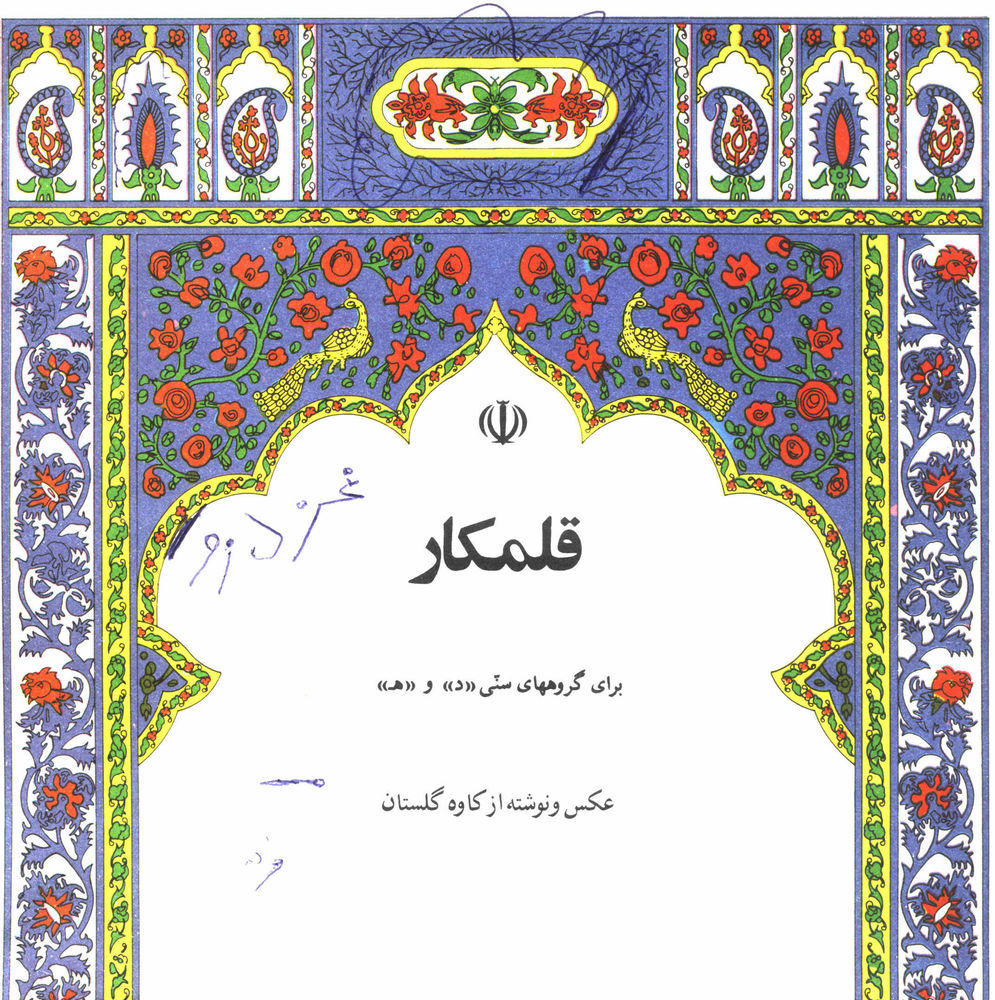 قلمکار
برای گروههای سنّی «د» و «هـ»
عکس و نوشته از کاوه گلستان